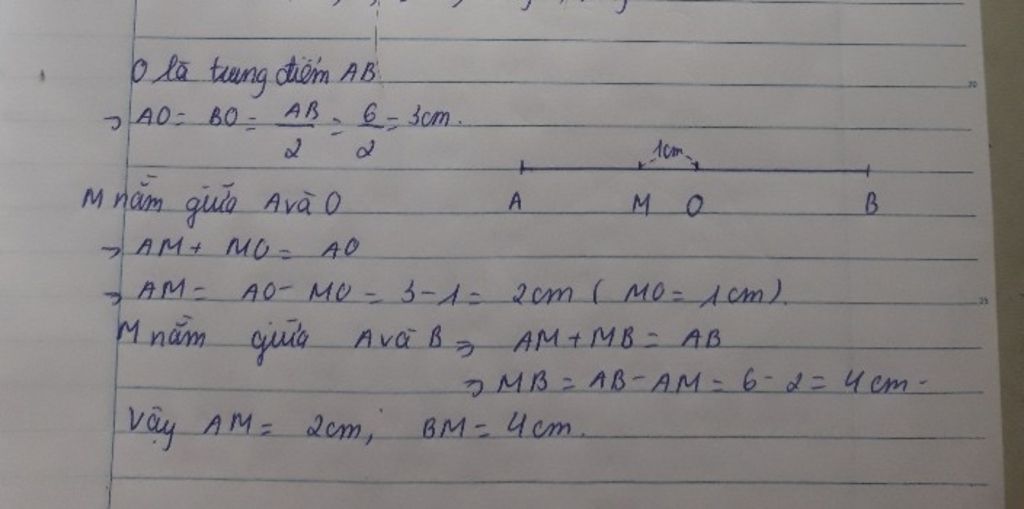 O là trung điểm AB
→ AO = BO = AB/2 = 6/2 = 3cm.
1cm
A M O B
M nằm giữa A và O
→ AM + MO = AO
→ AM = AO - MO = 3 - 1 = 2cm ( MO = 1cm).
M nằm giữa A và B → AM + MB = AB
→ MB = AB - AM = 6 - 2 = 4cm.
Vậy AM = 2cm; BM = 4cm.